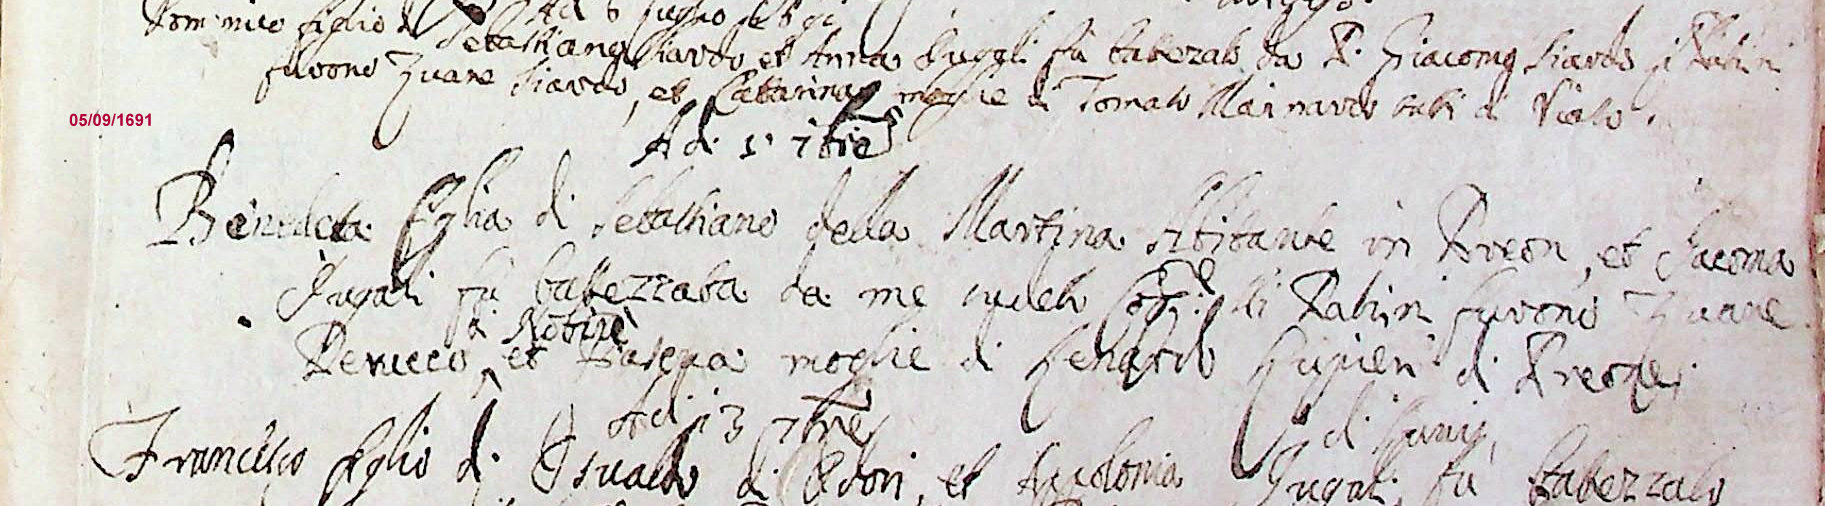 Ad 6 luglio 1691
Dominico figlio di Sebastiano Siardo et Anna Jugali fù battezato da P. Giacomo Siardo i Patrini
furono Zuane Siardo, et Cattarina moglie di Tomaso Mainardo tutti di Vialo.
05/09/1691
Adi 5 7bre
Benedeta figlia di Sebastiano della Martina Abitante in Preon, et Jacoma
Jugali fù battezzata da me sudeto li Patrini furono Zuane
di
Petucco, et moglie di Lenardo Lupieri di Preone.
adi 13 7bre
Francesco figlio di Osualdo di, et Apolonia Jugali, fù battezzato